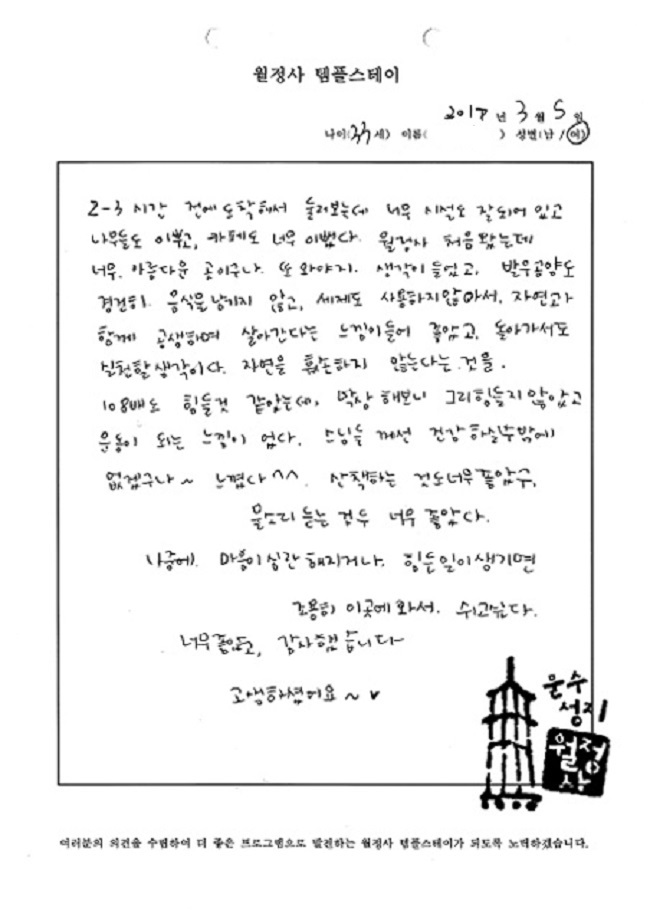 월정사 템플스테이
2017 년 3 월 5 일
나이(33세) 이름( ) 성별(남 / 여)
2-3 시간 전에 도착해서 둘러보는데 너무 시설도 잘되어 있고
나무들도 이쁘고, 카페도 너무 이뻤다. 월정사 처음 왔는데
너무. 아름다운 곳이구나. 또 와야지. 생각이 들었고, 발우공양도
경건히. 음식을 남기지 않고, 세제도 사용하지 않아서, 자연과
함께 공생하며 살아간다는 느낌이 들어 좋았고, 돌아가서도
실천할 생각이다. 자연을 훼손하지 않는다는 것을.
108배도 힘들것 같았는데, 막상 해보니 그리 힘들지 않았고
운동이 되는 느낌이 었다. 스님들 께선 건강 하실수 밖에
없겠구나 ~ 느꼈다 ^^. 산책하는 것도 너무 좋았구,
물소리 듣는 것두 너무 좋았다.
나중에. 마음이 심란 해지거나. 힘든 일이 생기면
조용히 이곳에 와서. 쉬고싶다.
너무 좋았고, 감사했습니다
고생하셨어요 ~ ♥
문수
성지
월정
사
여러분의 의견을 수렴하여 더 좋은 프로그램으로 발전하는 월정사 템플스테이가 되도록 노력하겠습니다.